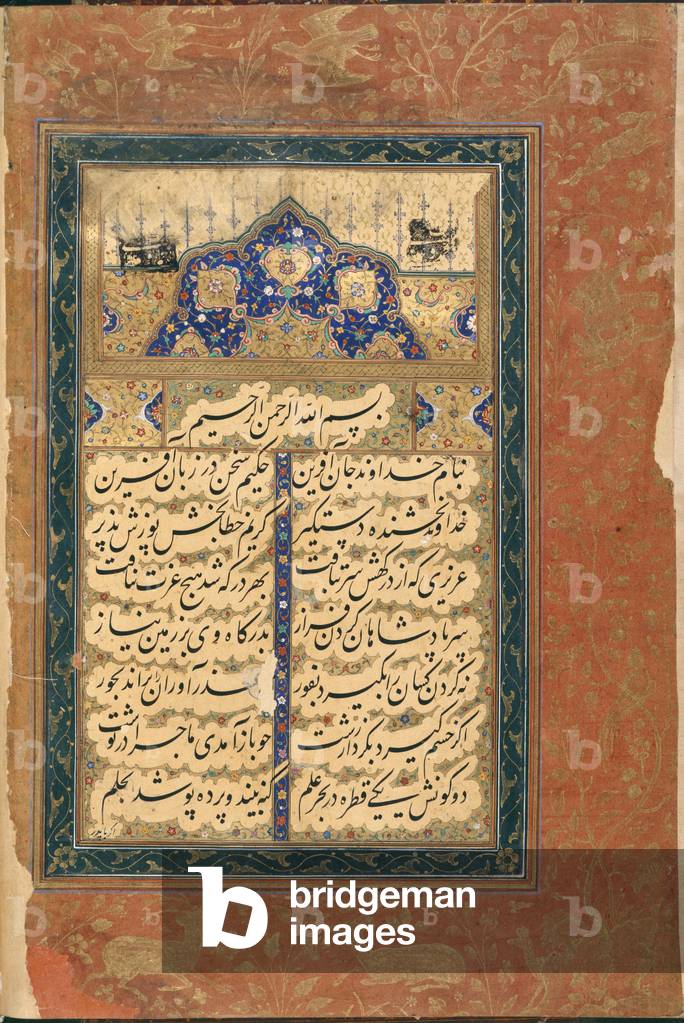 بسم الله الرحمن الرحیم
بنام خداوند جان آفرین حکیم سخن در زبان آفرین
خداوند بخشنده دستگیر کریم خطابخش پوزش پذیر
عزیزی که از درکهش سر بتافت بهر در که شد هیچ عزت نیافت
سر پادشاهان کردن فراز بدرکاه وی بر زمین نیاز
نه کردن کشان را بگیرد بفور عذرآوران را براند بجور
اکر خشم کیرد بکردار زشت چو بازآمدی ماجرا درنوشت
دو کونش یکی قطره در بحر علم کنه بیند و پرده پوشد بحلم
اکر با پدر
b bridgeman images